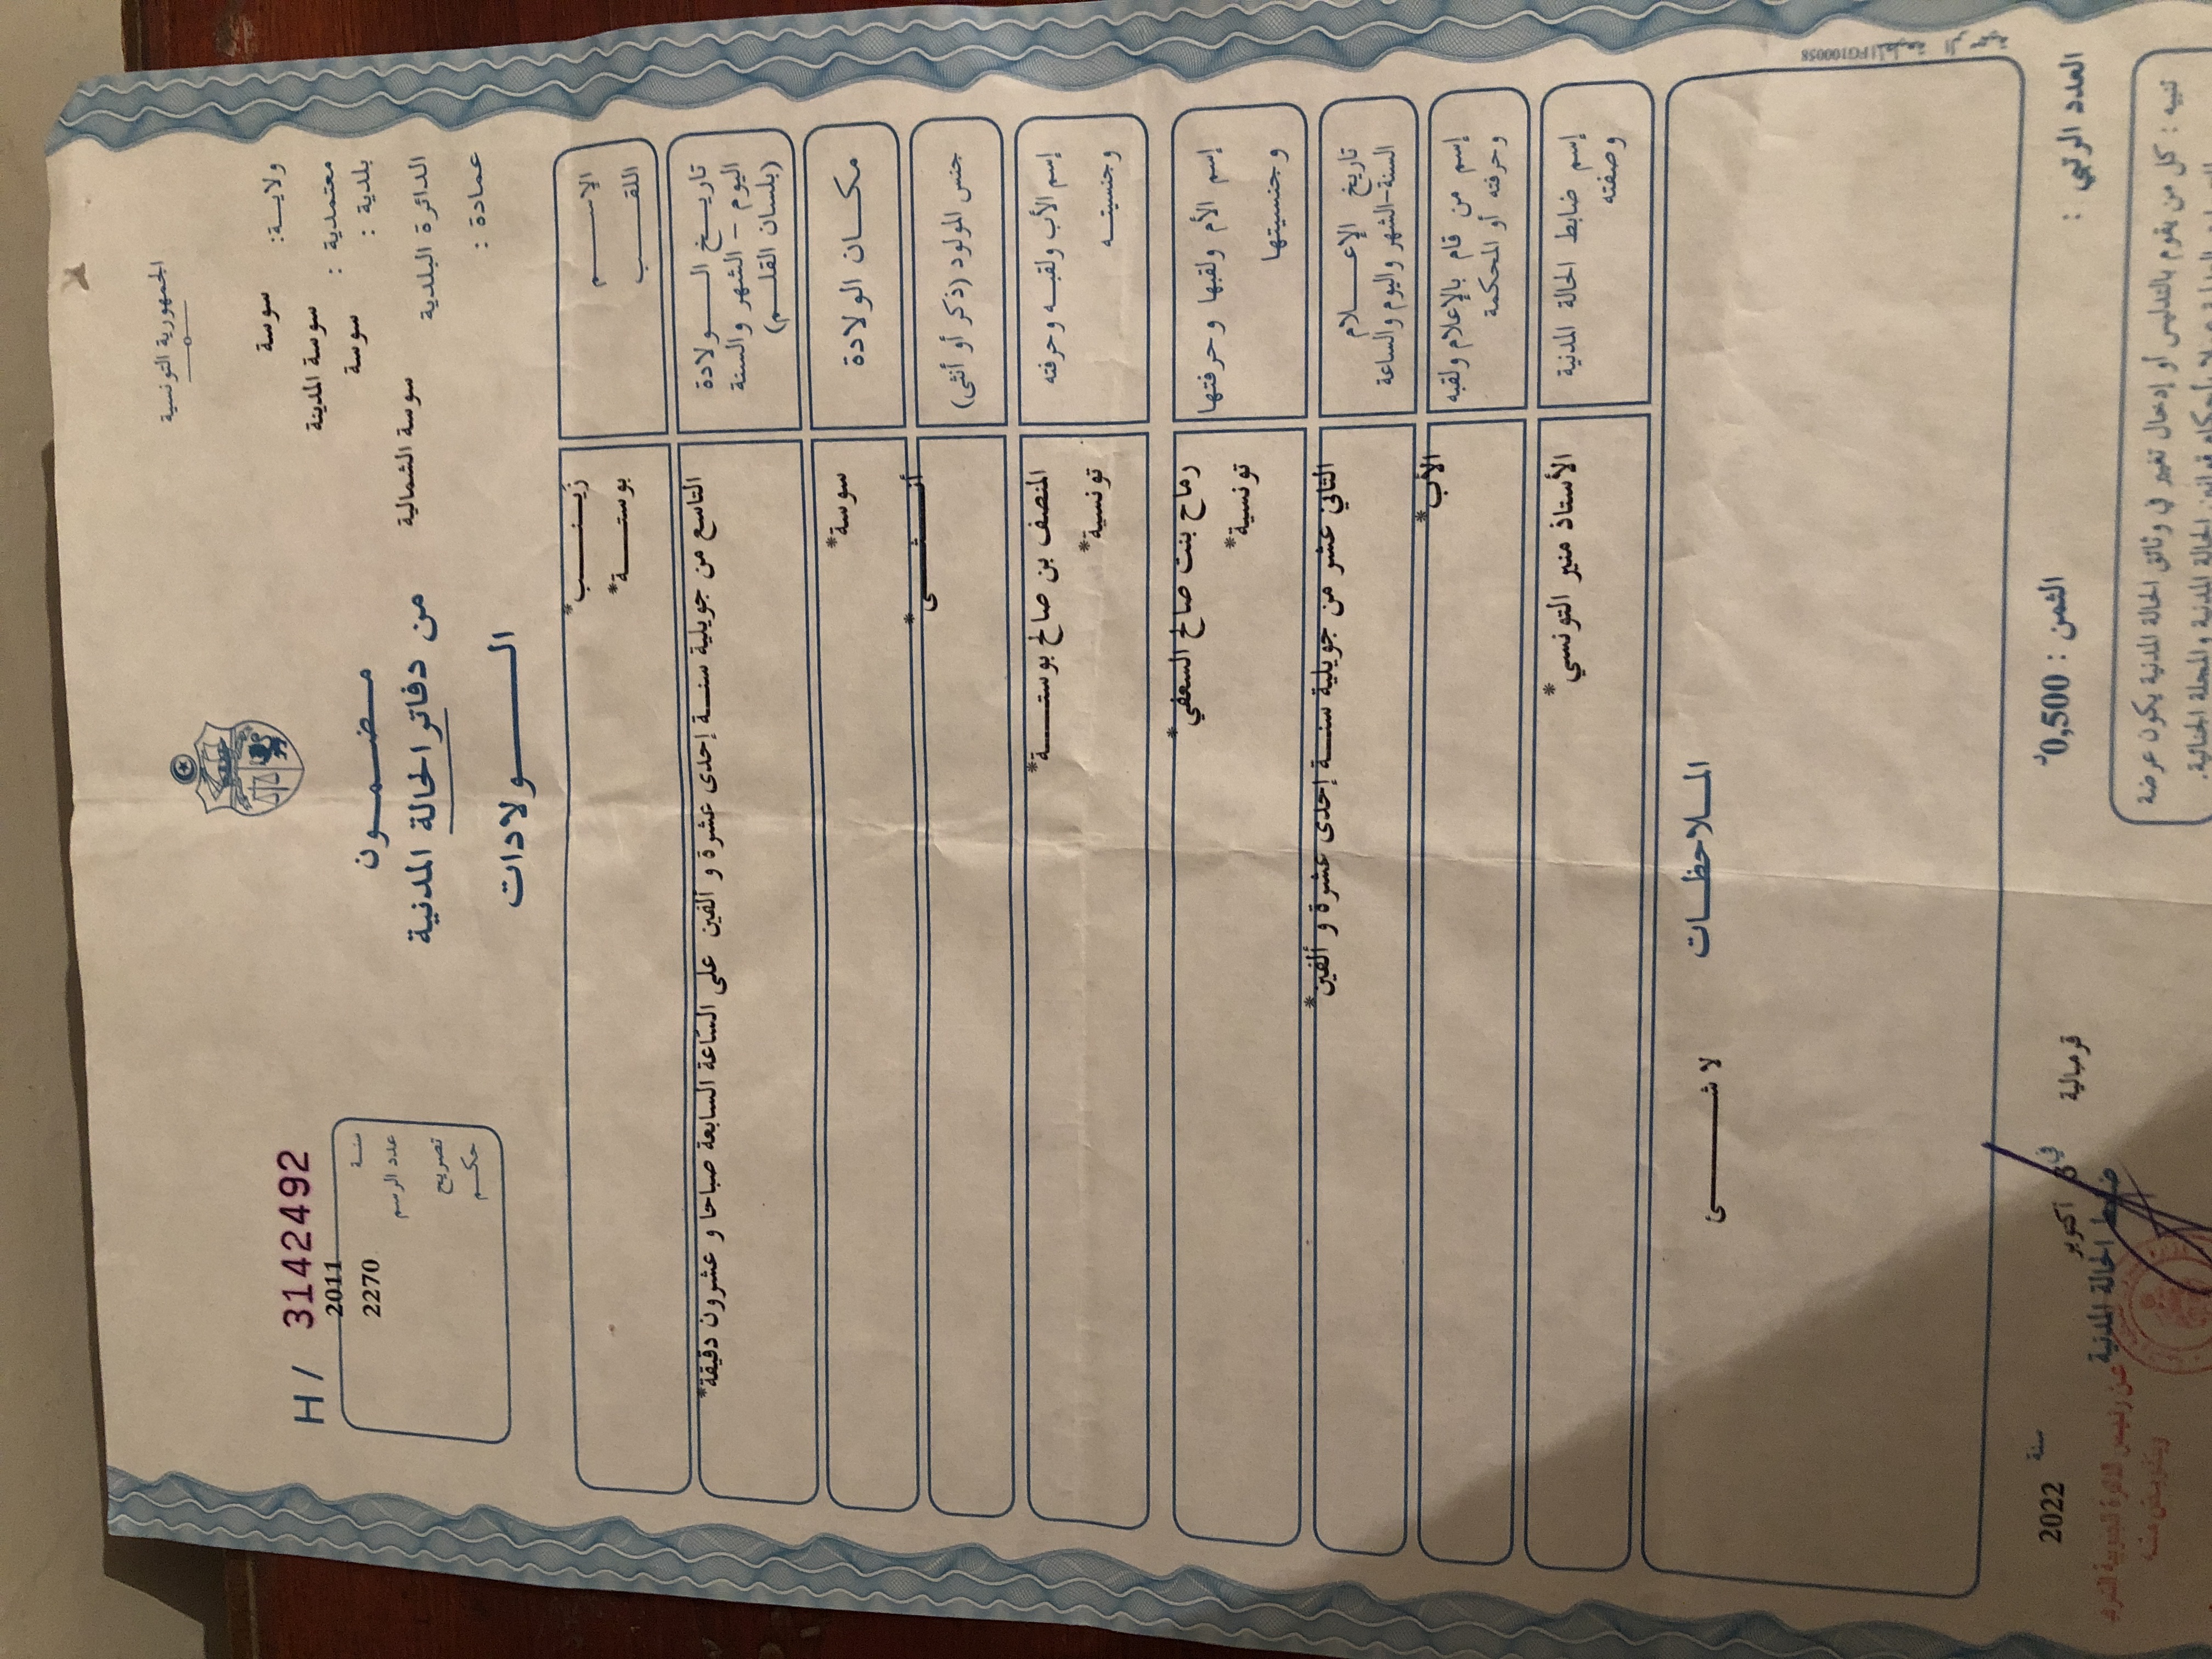 الجمهورية التونسية
ولاية: سوسة
معتمدية : سوسة المدينة
بلدية : سوسة
الدائرة البلدية سوسة الشمالية
عمادة :
مضمون
من دفاتر الحالة المدنية
الولادات
H / 3142492
سنة 2011
عدد الرسم 2270
تصريح
حكم
الاسم زينب*
اللقب بوستة*
تاريخ الولادة
اليوم - الشهر والسنة
(بلسان القلم)
التاسع من جويلية سنة إحدى عشرة و ألفين على الساعة السابعة صباحا و عشرون دقيقة*
مكان الولادة سوسة*
جنس المولود (ذكر أو أنثى) أنثى*
إسم الأب ولقبه وحرفته المنصف بن صالح بوستة*
وجنسيته تونسية*
إسم الأم ولقبها وحرفتها رماح بنت صالح السعفي*
وجنسيتها تونسية*
تاريخ الإعلام
السنة-الشهر واليوم والساعة
الثاني عشر من جويلية سنة إحدى عشرة و ألفين*
إسم من قام بالإعلام ولقبه
وحرفته أو المحكمة
الأب*
إسم ضابط الحالة المدنية
وصفته
الأستاذ منير التونسي*
الملاحظات
لا شئ
FG100058
العدد الرتبي :
الثمن : 0,500د
قرمبالية في 8 أكتوبر سنة 2022
ضابط الحالة المدنية
تنبيه : كل من يقوم بالتدليس أو إدخال تغيير في وثائق الحالة المدنية يكون عرضة